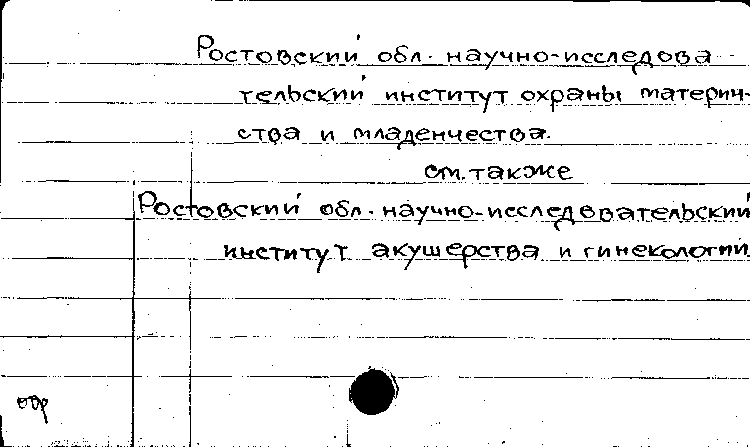 Ростовский обл. научно-исследова
тельский институт охраны материн-
ства и младенчества.
см. также
Ростовский обл. научно-исследовательский
институт акушерства и гинекологии.